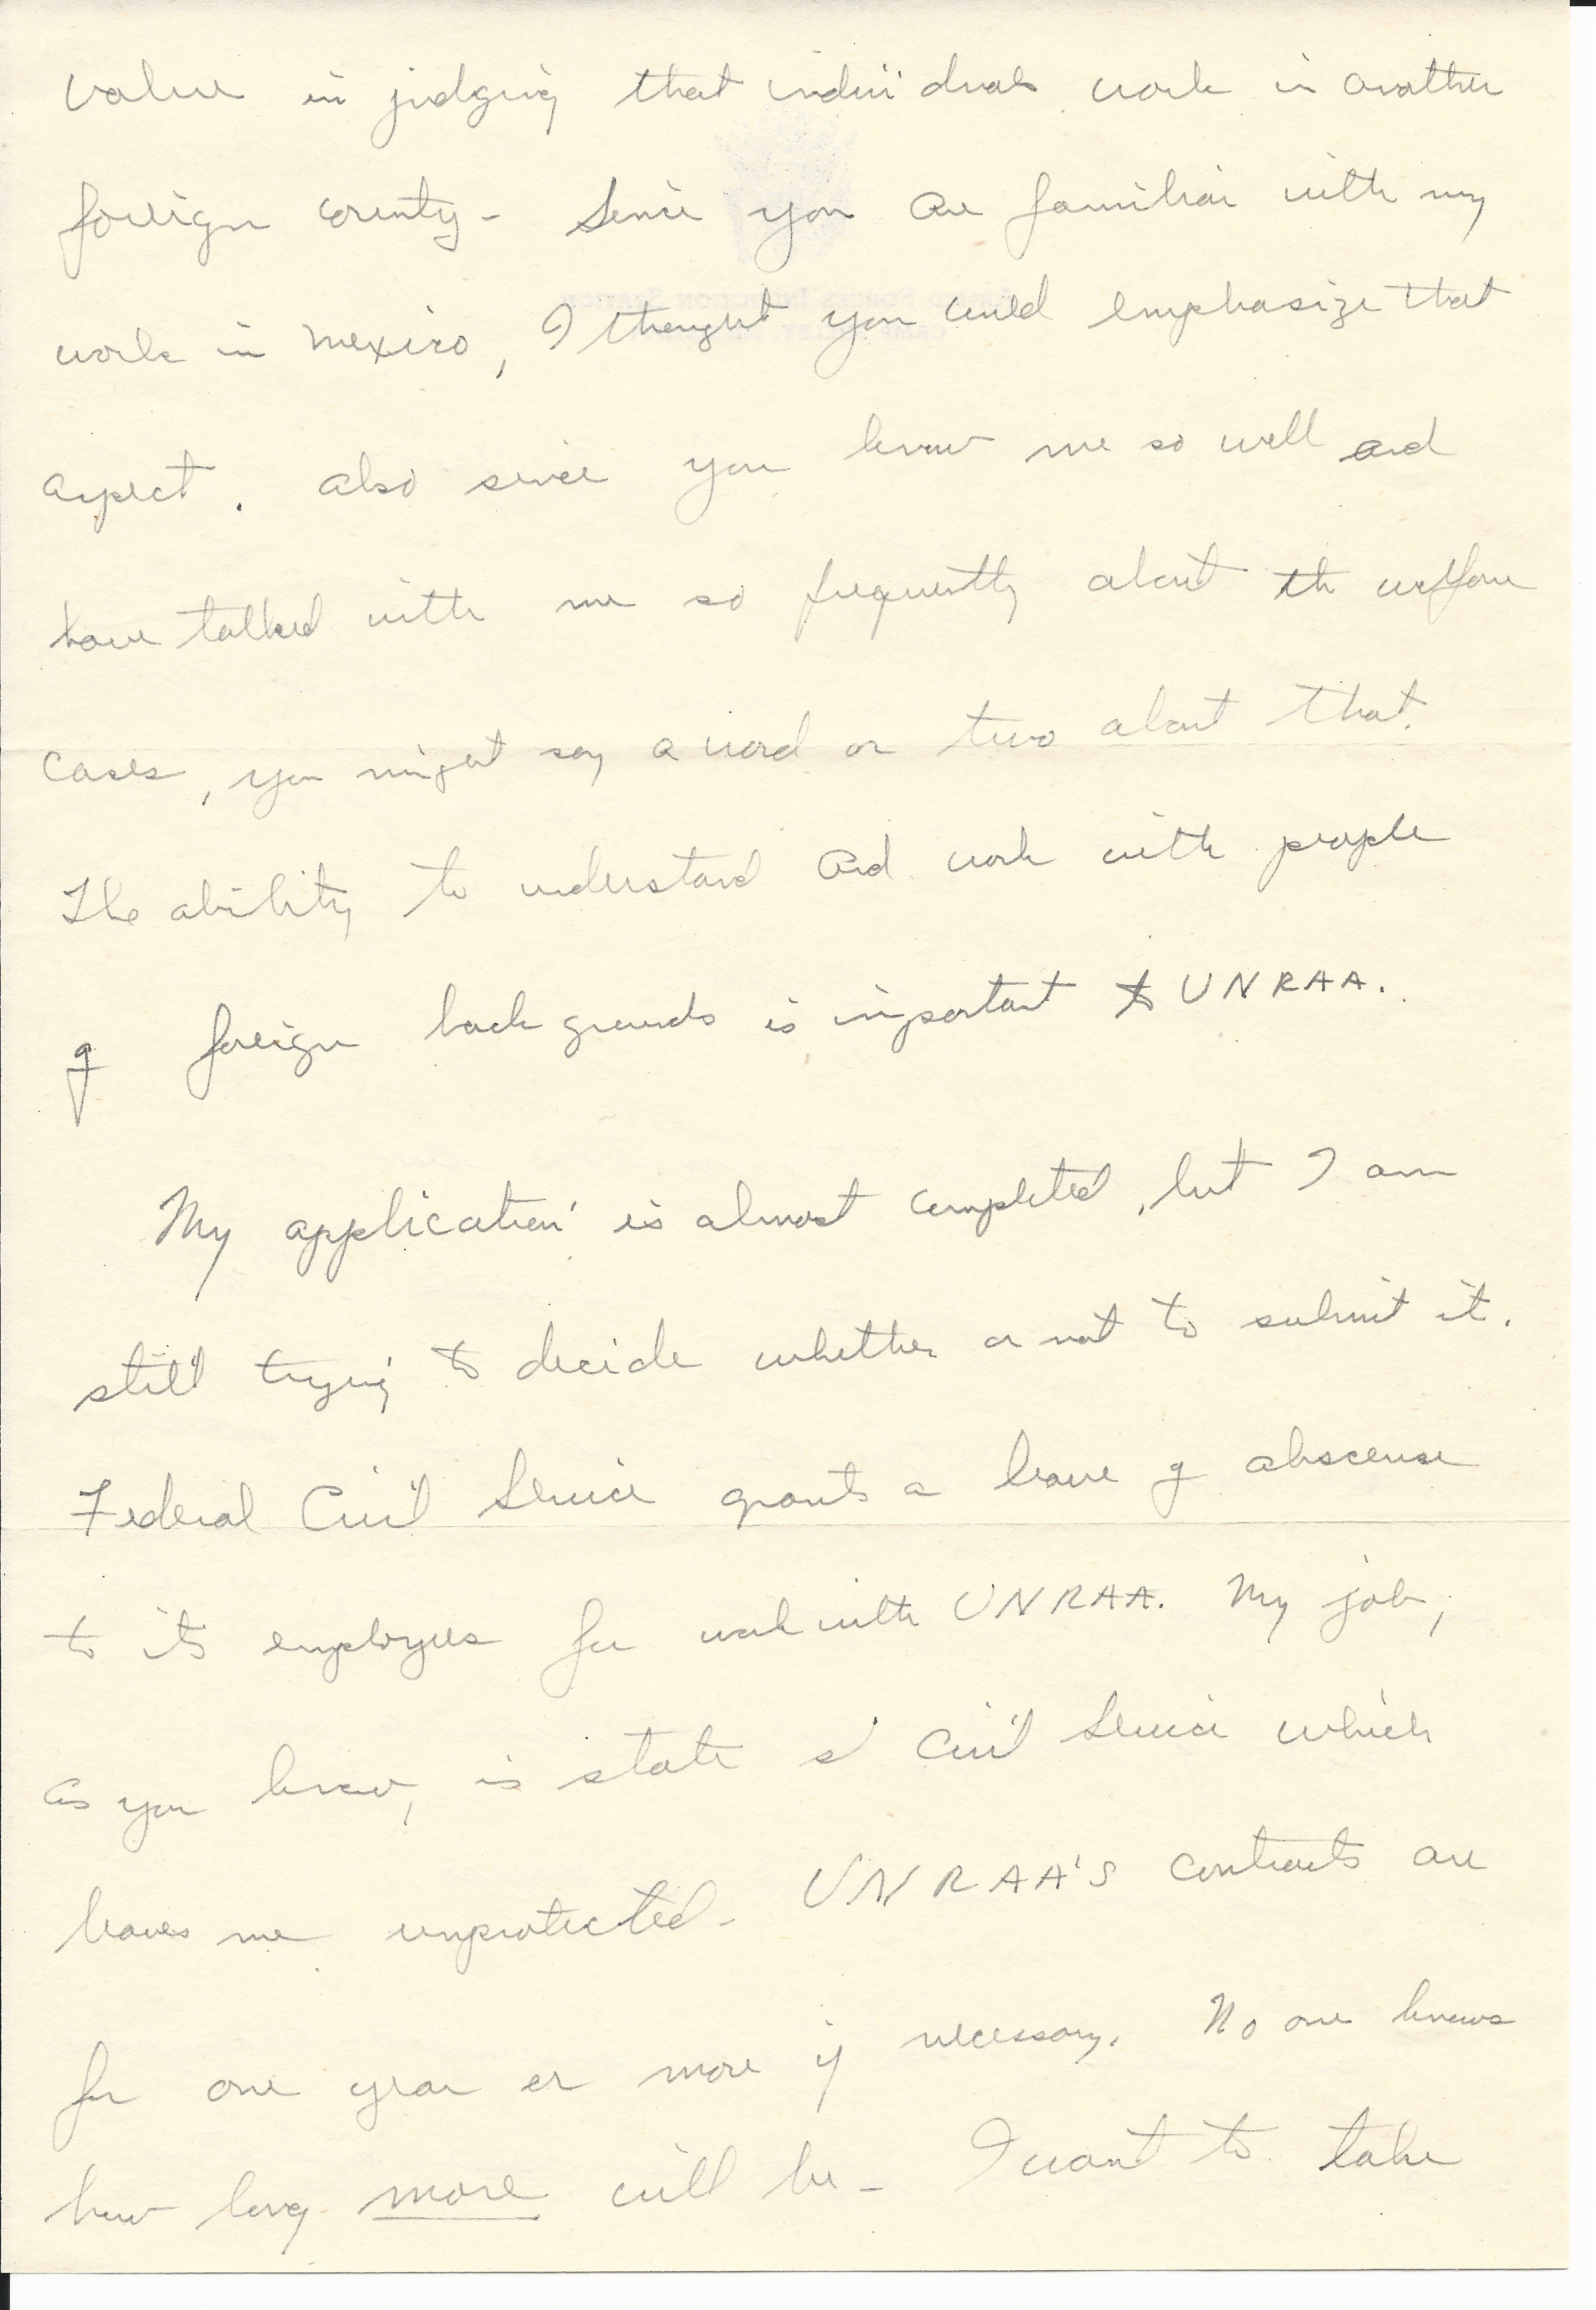 value in judging that individuals work in another
foreign county - Since you are familiar with my
work in Mexico, I thought you could emphasize that
aspect. Also since you know me so well and
have talked with me so frequently about the welfare
cases, you might say a word or two about that.
The ability to understand and work with people
of foreign back grounds is important to UNRAA.
My application is almost completed, but I am
still trying to decide whether or not to submit it.
Federal Civil Service grants a leave of abscense
to its employees for work with UNRAA. My job,
as you know, is state Civil Service which
leaves me unprotected - UNRAA's contracts are
for one year or more if necessary. No one knows
how long more will be - I want to take